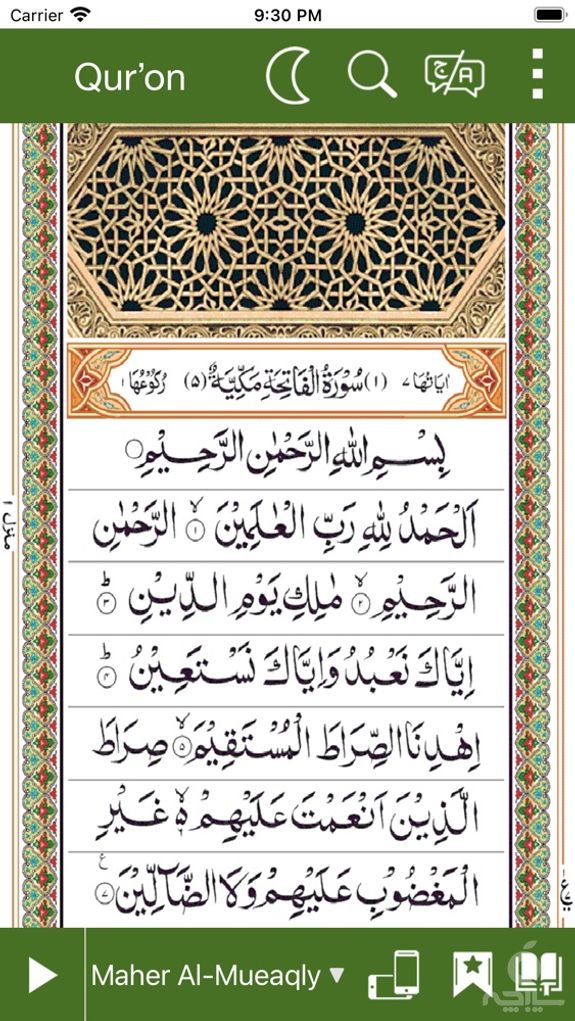 Carrier 9:30 PM
Qur’on
ج/A
اٰيَاتُهَا ٧ (١) سُوْرَةُ الْفَاتِحَةِ مَكِّيَّةٌ (٥) رُكُوْعُهَا ١
بِسْمِ اللّٰهِ الرَّحْمٰنِ الرَّحِيْمِ
اَلْحَمْدُ لِلّٰهِ رَبِّ الْعٰلَمِيْنَ ۙ‏ ١ الرَّحْمٰنِ
الرَّحِيْمِ ۙ‏ ٢ مٰلِكِ يَوْمِ الدِّيْنِ ؕ‏ ٣
اِيَّاكَ نَعْبُدُ وَاِيَّاكَ نَسْتَعِيْنُ ؕ‏ ٤
اِهْدِنَا الصِّرَاطَ الْمُسْتَقِيْمَ ۙ‏ ٥ صِرَاطَ
الَّذِيْنَ اَنْعَمْتَ عَلَيْهِمْ ۙ۬ غَيْرِ
الْمَغْضُوْبِ عَلَيْهِمْ وَلَا الضَّآلِّيْنَ ٧ ع
منزل ١
Maher Al-Mueaqly ▼
سیبچه